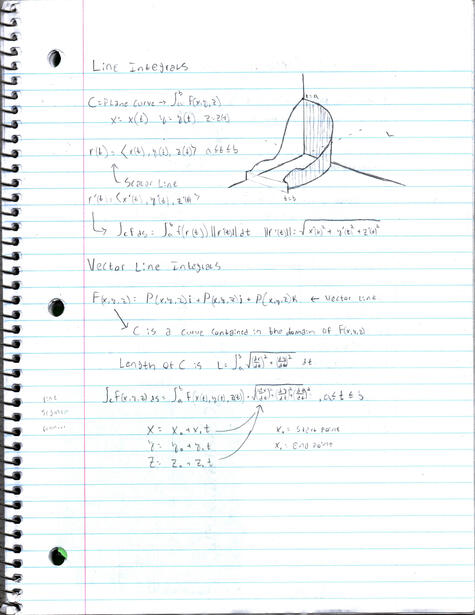 Line Integrals
C = Plane Curve → ∫ₐᵇ F(x,y,z)
x = x(t) y = y(t) z = z(t)
t=a
r(t) = ⟨x(t), y(t), z(t)⟩ a≤t≤b
Line
t=b
r'(t) = ⟨x'(t), y'(t), z'(t)⟩
∫c f ds = ∫ₐᵇ f(r(t)) ||r'(t)|| dt ||r'(t)|| = √x'(t)² + y'(t)² + z'(t)²
Vector Line Integrals
F(x,y,z) = P(x,y,z)i + P(x,y,z)j + P(x,y,z)k ← Vector Line
C is a curve contained in the domain of F(x,y,z)
Length of C is L = ∫ₐᵇ √(dx/dt)² + (dy/dt)² dt
∫c F(x,y,z) ds = ∫ₐᵇ F(x(t), y(t), z(t)) · √(dx/dt)² + (dy/dt)² + (dz/dt)², a≤t≤b
Line
Segment
x = x₀ + x₁t x₀ = Start Point
y = y₀ + y₁t x₁ = End Point
z = z₀ + z₁t